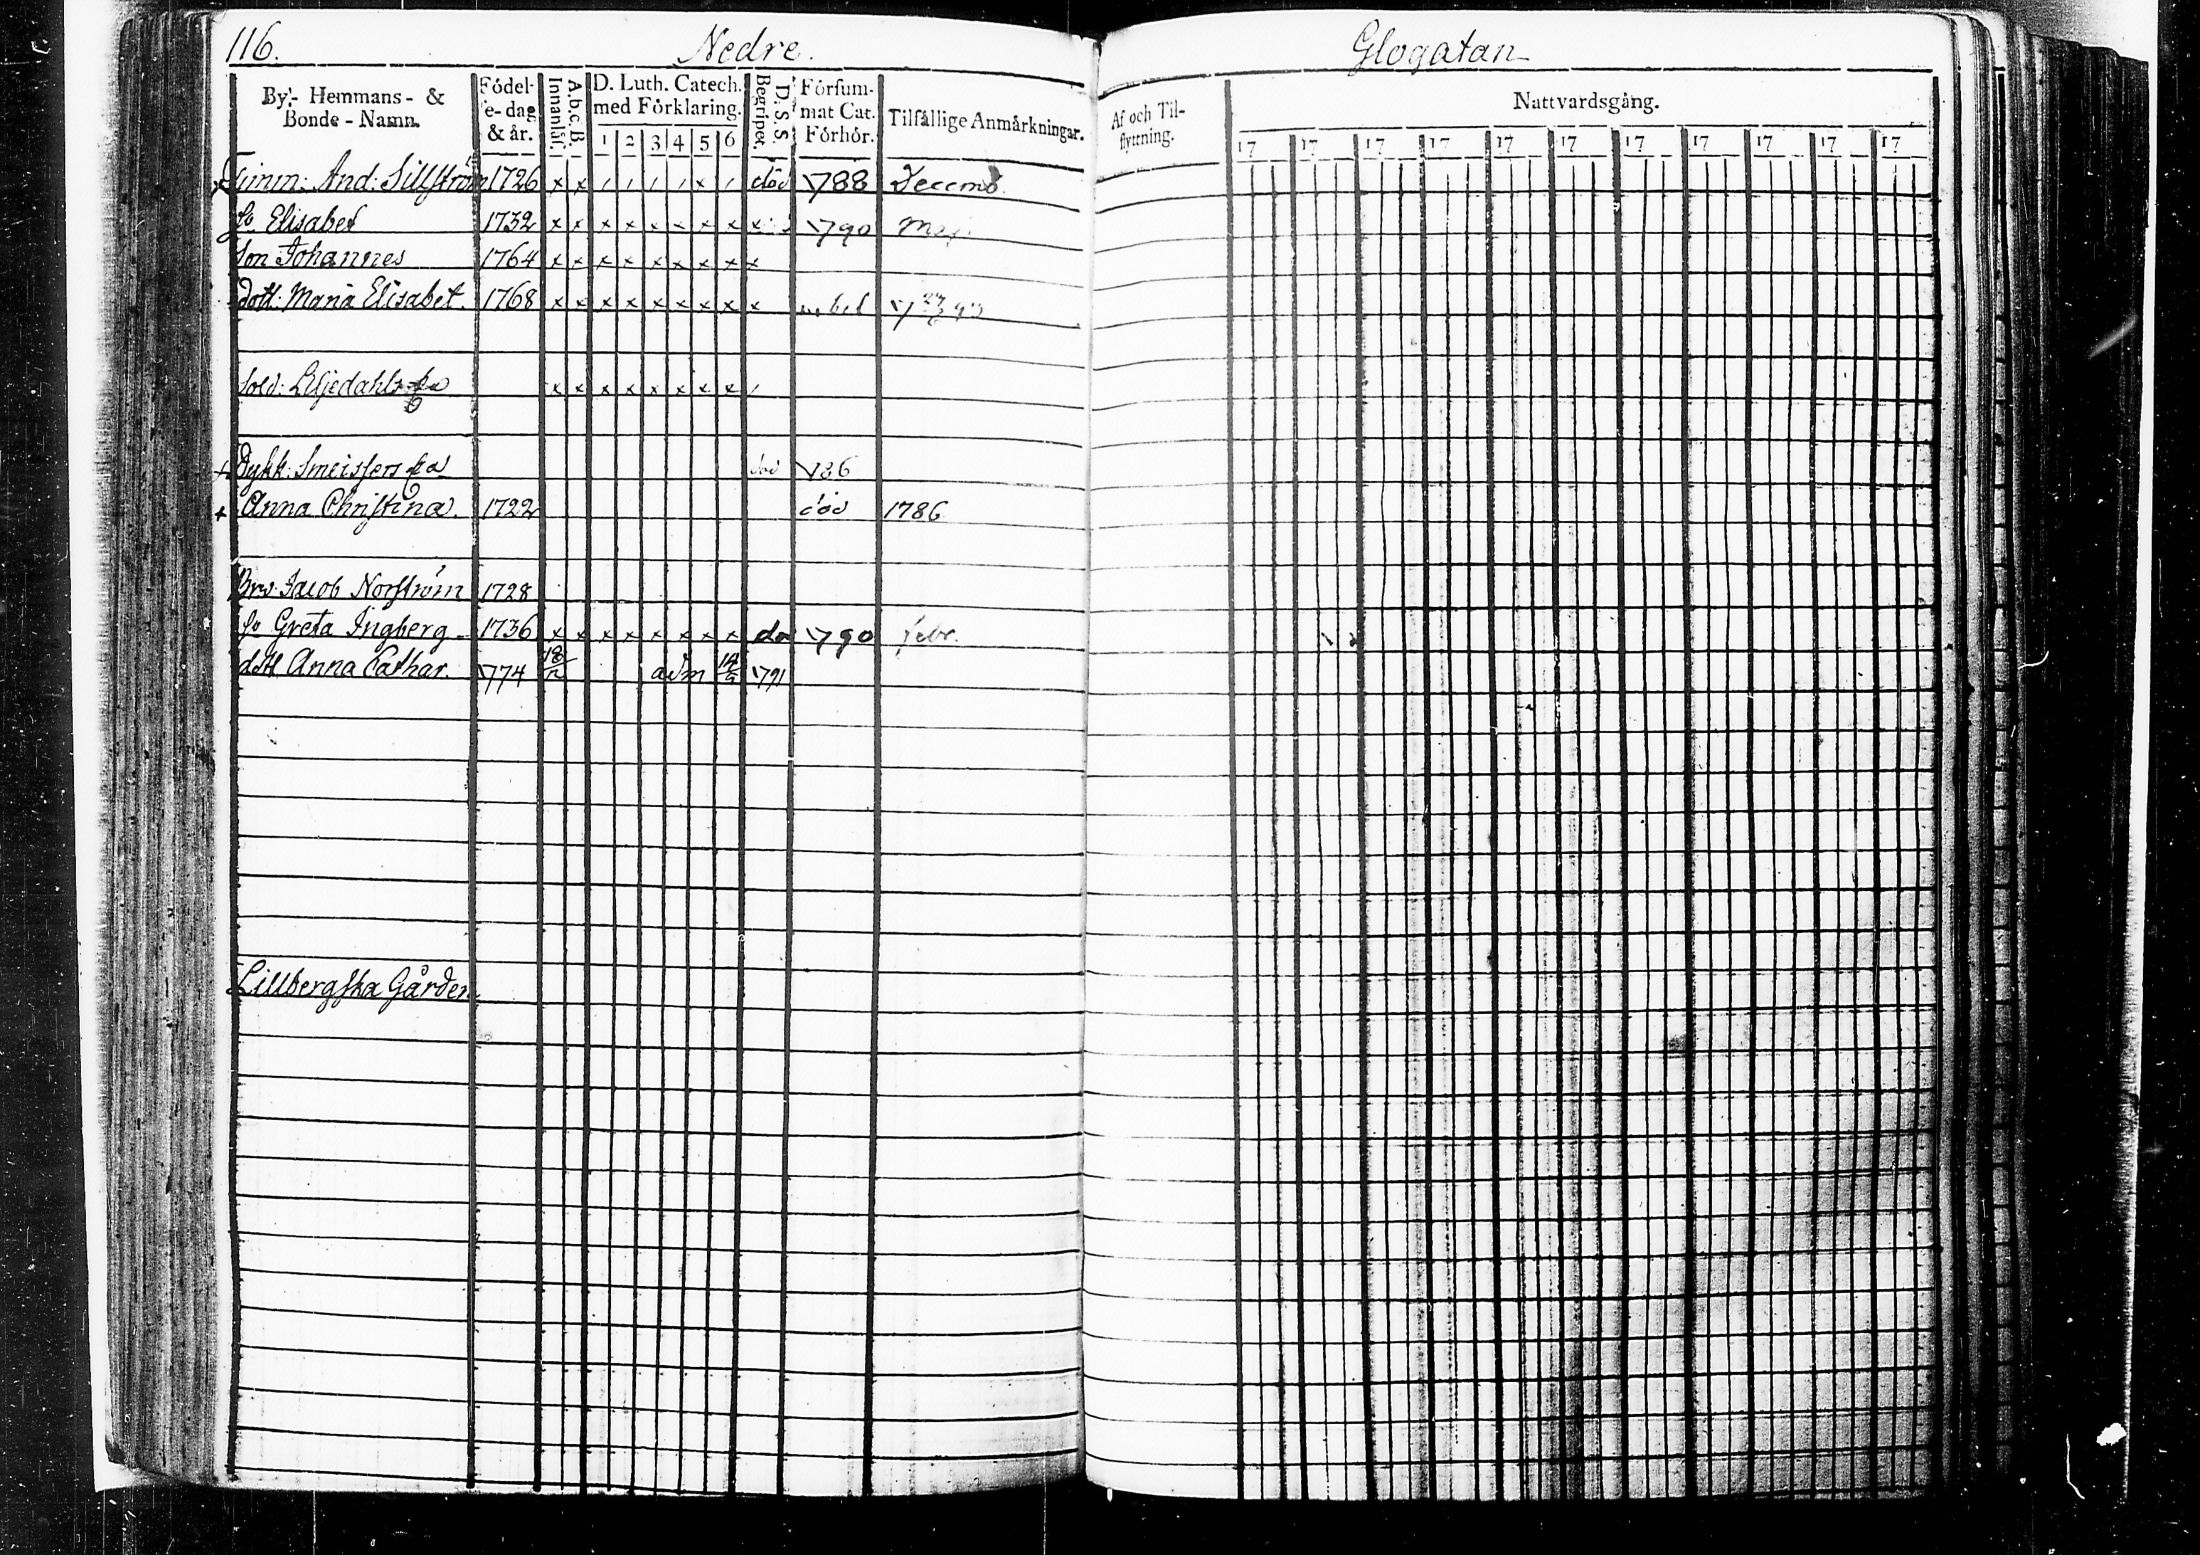 116. Nedre. Glogatan
By- Hemmans- & Bonde-Namn.
Födel-e-dag & år.
Innanläs.
A.b.c.B.
D. Luth. Catech. med Förklaring.
1 2 3 4 5 6
Begripet.
D. S. S.
Försummat Cat. Förhör.
Tilfällige Anmärkningar.
Af och Tilflyttning.
Nattvardsgång.
17 17 17 17 17 17 17 17 17 17 17
Timm: And: Sillström 1726 x x / / / / x / död 1788 Decemb.
Elisabet 1732 x x x x x x x x x 1790
Son Johannes 1764 x x x x x x x x x
dott: Maria Elisabet. 1768 x x x x x x x x x
Sold: Liljedahls x x x x x x x x /
+ Dykk: död 186
+ Anna Christina. 1722 död 1786
Jacob Norström 1728
Greta Ingberg 1736 x x x x x x x x 1790 febr.
dott Anna Cathar. 1774 adm 1791
Lillbergska Gården